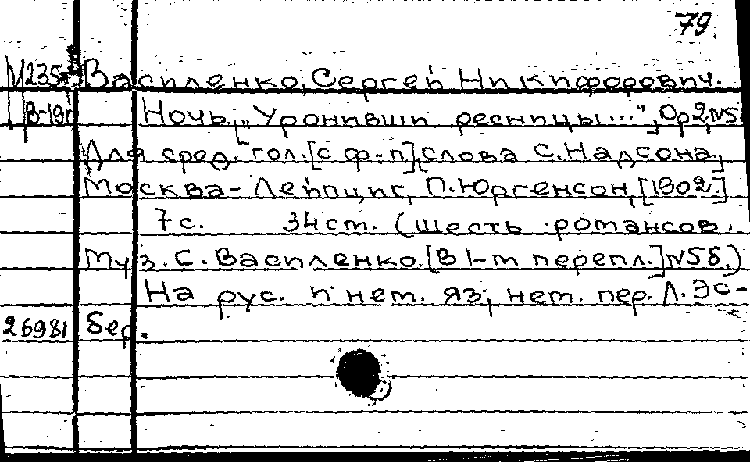 79
М235 Василенко, Сергей Никифорович.
В-19г Ночь, „Уронивши ресницы...", Op.2, №5
Для сред. гол. [с ф-п], слова С. Надсона,
Москва-Лейпциг, П. Юргенсон, [1902.]
7 с. 34 cm. (Шесть романсов.
Муз. С. Василенко. [В 1-m перепл.] №5б.)
На рус. и нем. яз; нем. пер. Л. Эс-
26981 бер.